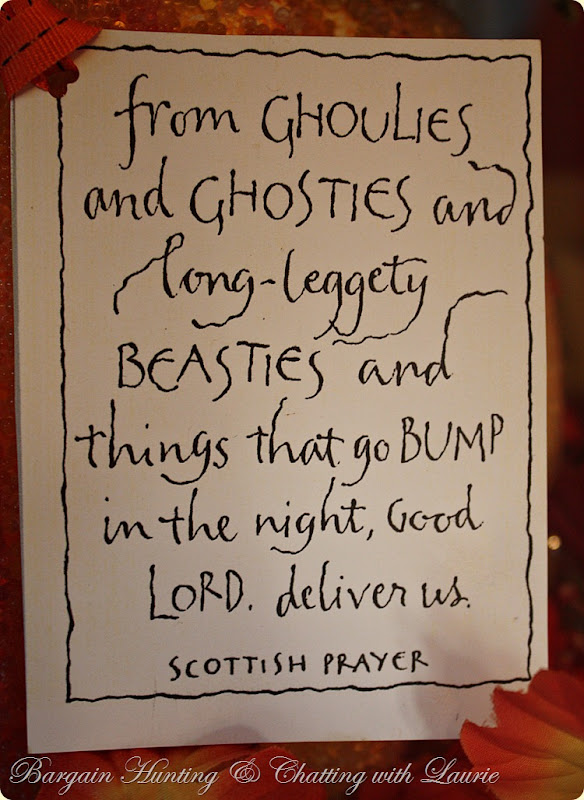 from GHOULIES
and GHOSTIES and
long-leggety
BEASTIES and
things that go BUMP
in the night, Good
LORD. deliver us.
SCOTTISH PRAYER
Bargain Hunting & Chatting with Laurie